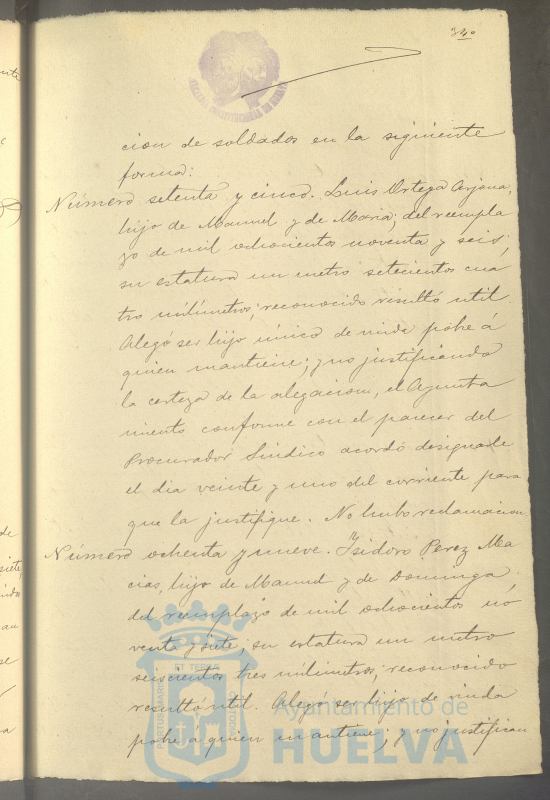 340
cion de soldados en la siguiente
forma:
Número setenta y cinco. Luis Ortega Arjona,
hijo de Manuel y de Maria; del reempla
zo de mil ochocientos noventa y seis;
su estatura un metro setecientos cua
tro milímetros; reconocido resultó util.
Alegó ser hijo único de viuda pobre á
quien mantiene; y no justificando
la certeza de la alegacion, el Ayunta
miento conforme con el parecer del
Procurador Síndico acordó designarle
el dia veinte y uno del corriente para
que la justifique. No hubo reclamacion
Número ochenta y nueve. Isidoro Perez Ma
cias, hijo de Manuel y de Dominga,
del reemplazo de mil ochocientos no
venta y siete; su estatura un metro
seiscientos tres milimetros; reconocido
resultó util. Alegó ser hijo de viuda
pobre a quien mantiene; y no justifican
Ayuntamiento de
HUELVA